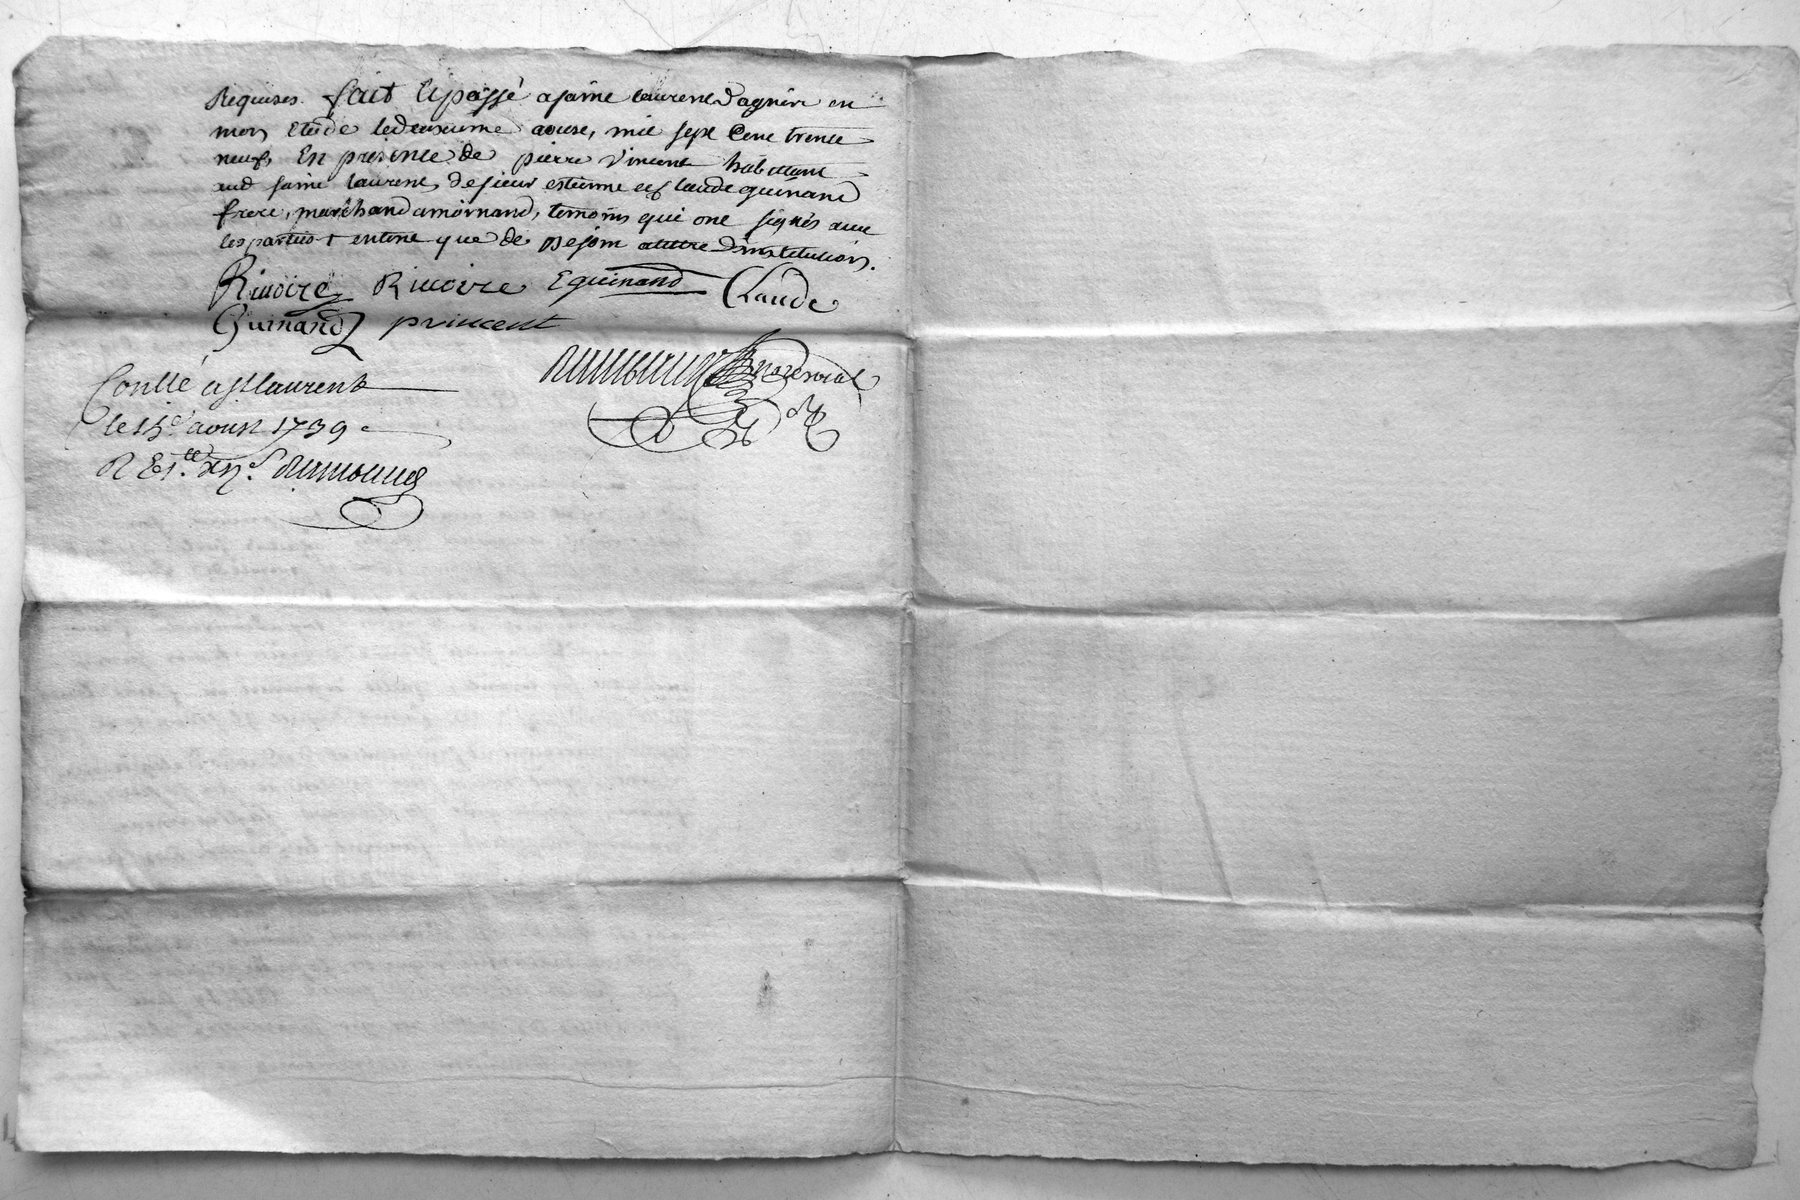 Requises fait Et passé a saint laurent d'agniri en
mon Etude le deuxieme aoust, mil sept Cent trente
neuf, En presence de pierre Vincent habitant
aud saint laurent, de sieur estienne et Claude guinand
frere, marchand a mornand, temoins qui ont signés avec
les parties
Riuoire Riuoire Eguinand Claude
Guinand pvincent
Conllé a St laurent
le 15e aoust 1739